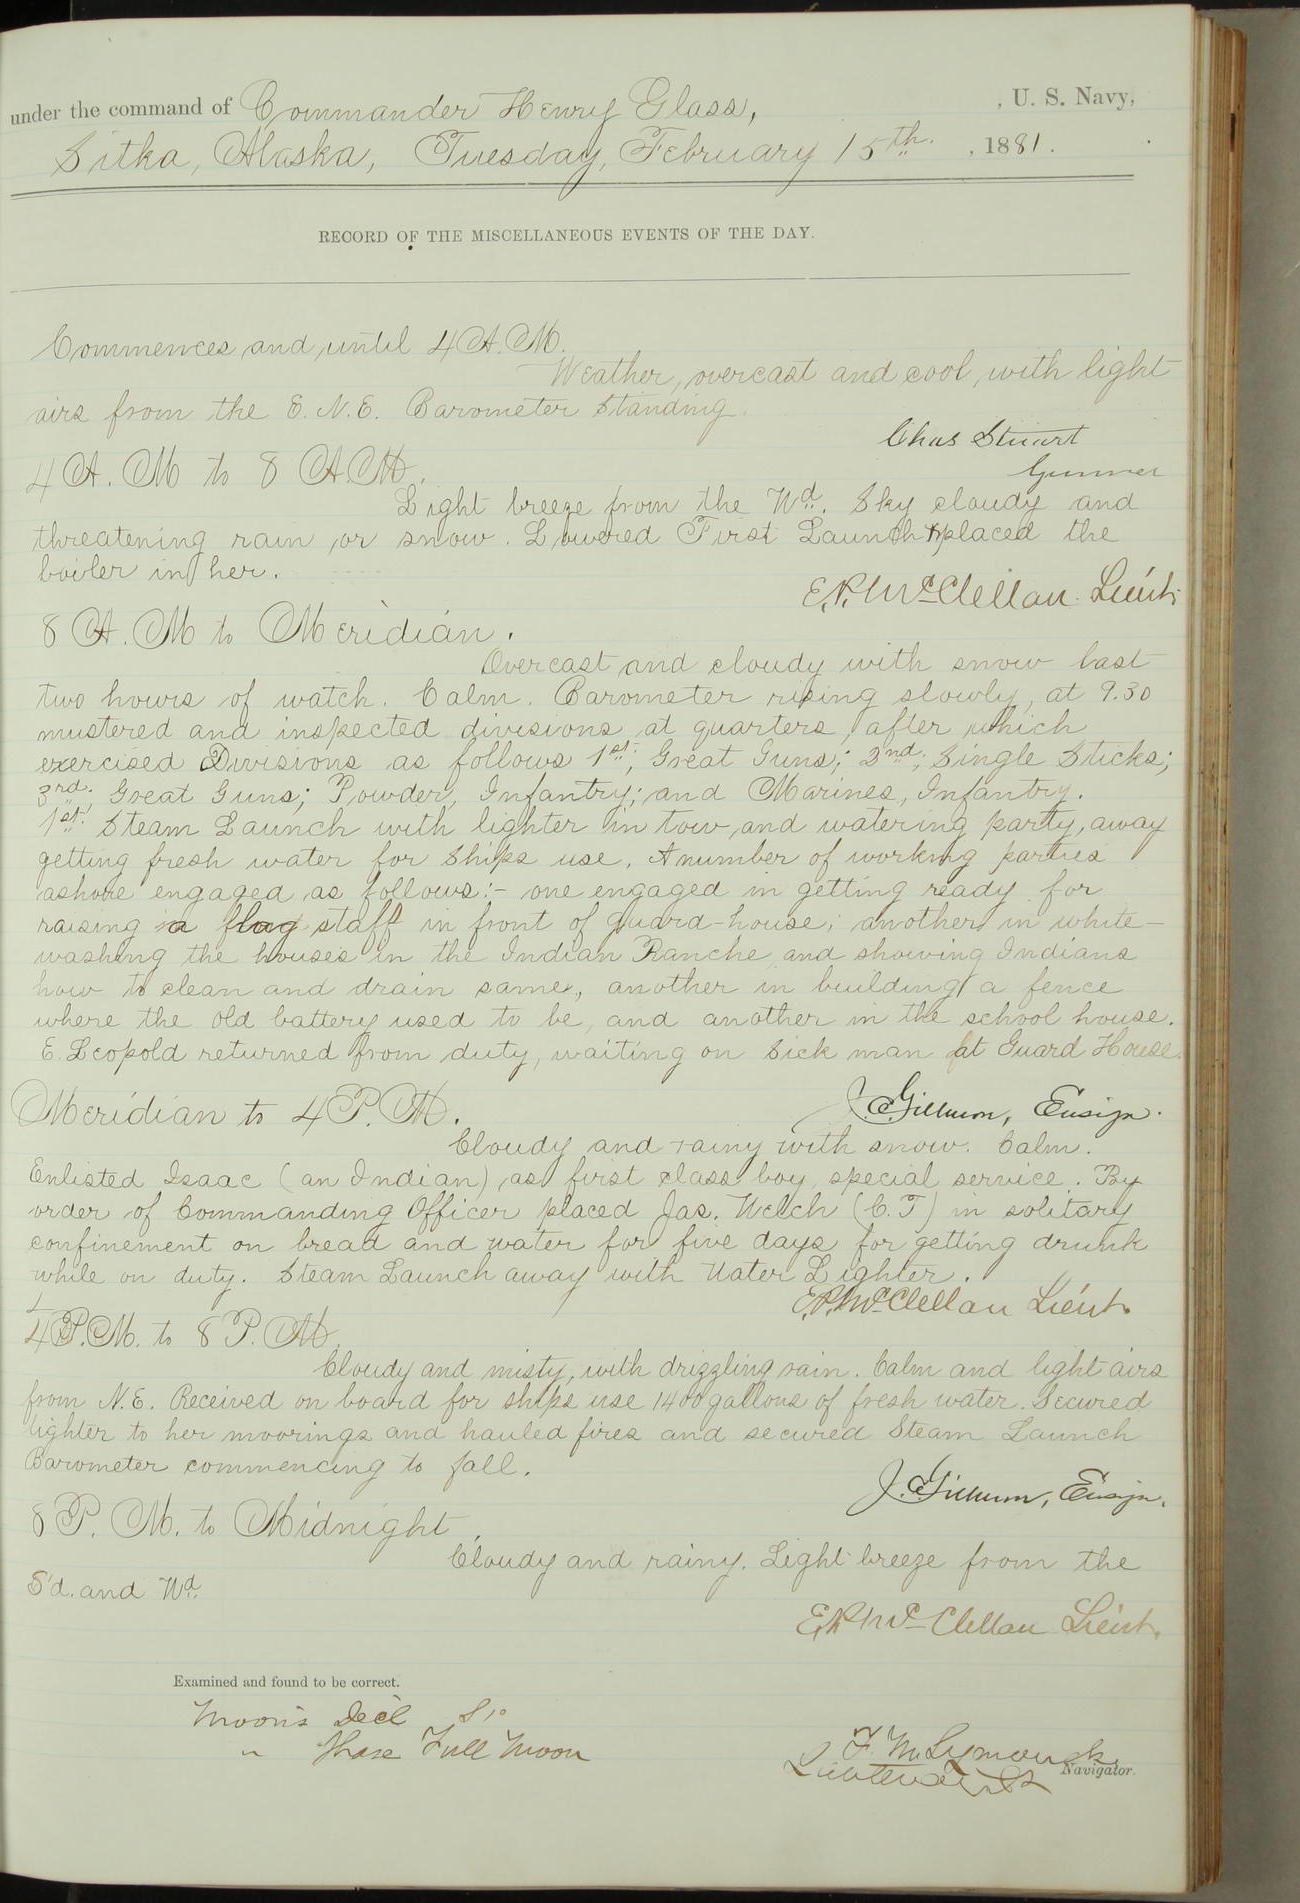 under the command of Commander Henry Glass, , U. S. Navy,
Sitka, Alaska, Tuesday, February 15th. , 1881.
RECORD OF THE MISCELLANEOUS EVENTS OF THE DAY.
Commences and until 4 A.M.
Weather, overcast and cool, with light
airs from the E. N.E. Barometer Standing.
Chas Stuart
Gunner
4 A.M to 8 A.M.
Light breeze from the Wd. Sky cloudy and
threatening rain or snow. Lowered First Launch & placed the
boiler in her.
E.P. McClellan Lieut.
8 A.M to Meridian.
Overcast and cloudy with snow last
two hours of watch. Calm. Barometer rising slowly, at 9.30
mustered and inspected divisions at quarters, after which
exercised Divisions as follows 1st; Great Guns; 2nd; Single Sticks;
3rd; Great Guns; Powder, Infantry; and Marines, Infantry.
1st. Steam Launch with lighter in tow, and watering party, away
getting fresh water for ships use. A number of working parties
ashore engaged as follows:- one engaged in getting ready for
raising a flag staff in front of guard-house; another in white-
washing the houses in the Indian Ranche and showing Indians
how to clean and drain same, another in building a fence
where the old battery used to be, and another in the school house.
E. Leopold returned from duty, waiting on sick man at Guard House.
J.C. Gillmore, Ensign.
Meridian to 4 P.M.
Cloudy and rainy with snow. Calm.
Enlisted Isaac (an Indian), as first class boy, special service. By
order of Commanding Officer placed Jas. Welch (C.T) in solitary
confinement on bread and water for five days for getting drunk
while on duty. Steam Launch away with Water Lighter.
E.P. McClellan Lieut.
4 P.M. to 8 P.M.
Cloudy and misty, with drizzling rain. Calm and light airs
from N.E. Received on board for ships use 1400 gallons of fresh water. Secured
lighter to her moorings and hauled fires and secured Steam Launch
Barometer commencing to fall.
J.C. Gillmore, Ensign.
8 P.M. to Midnight.
Cloudy and rainy. Light breeze from the
S'd. and Wd.
E.P. McClellan Lieut.
Examined and found to be correct.
Moon's Decl
" Phase Full Moon
F. M. Symonds
Lieutenant Navigator.